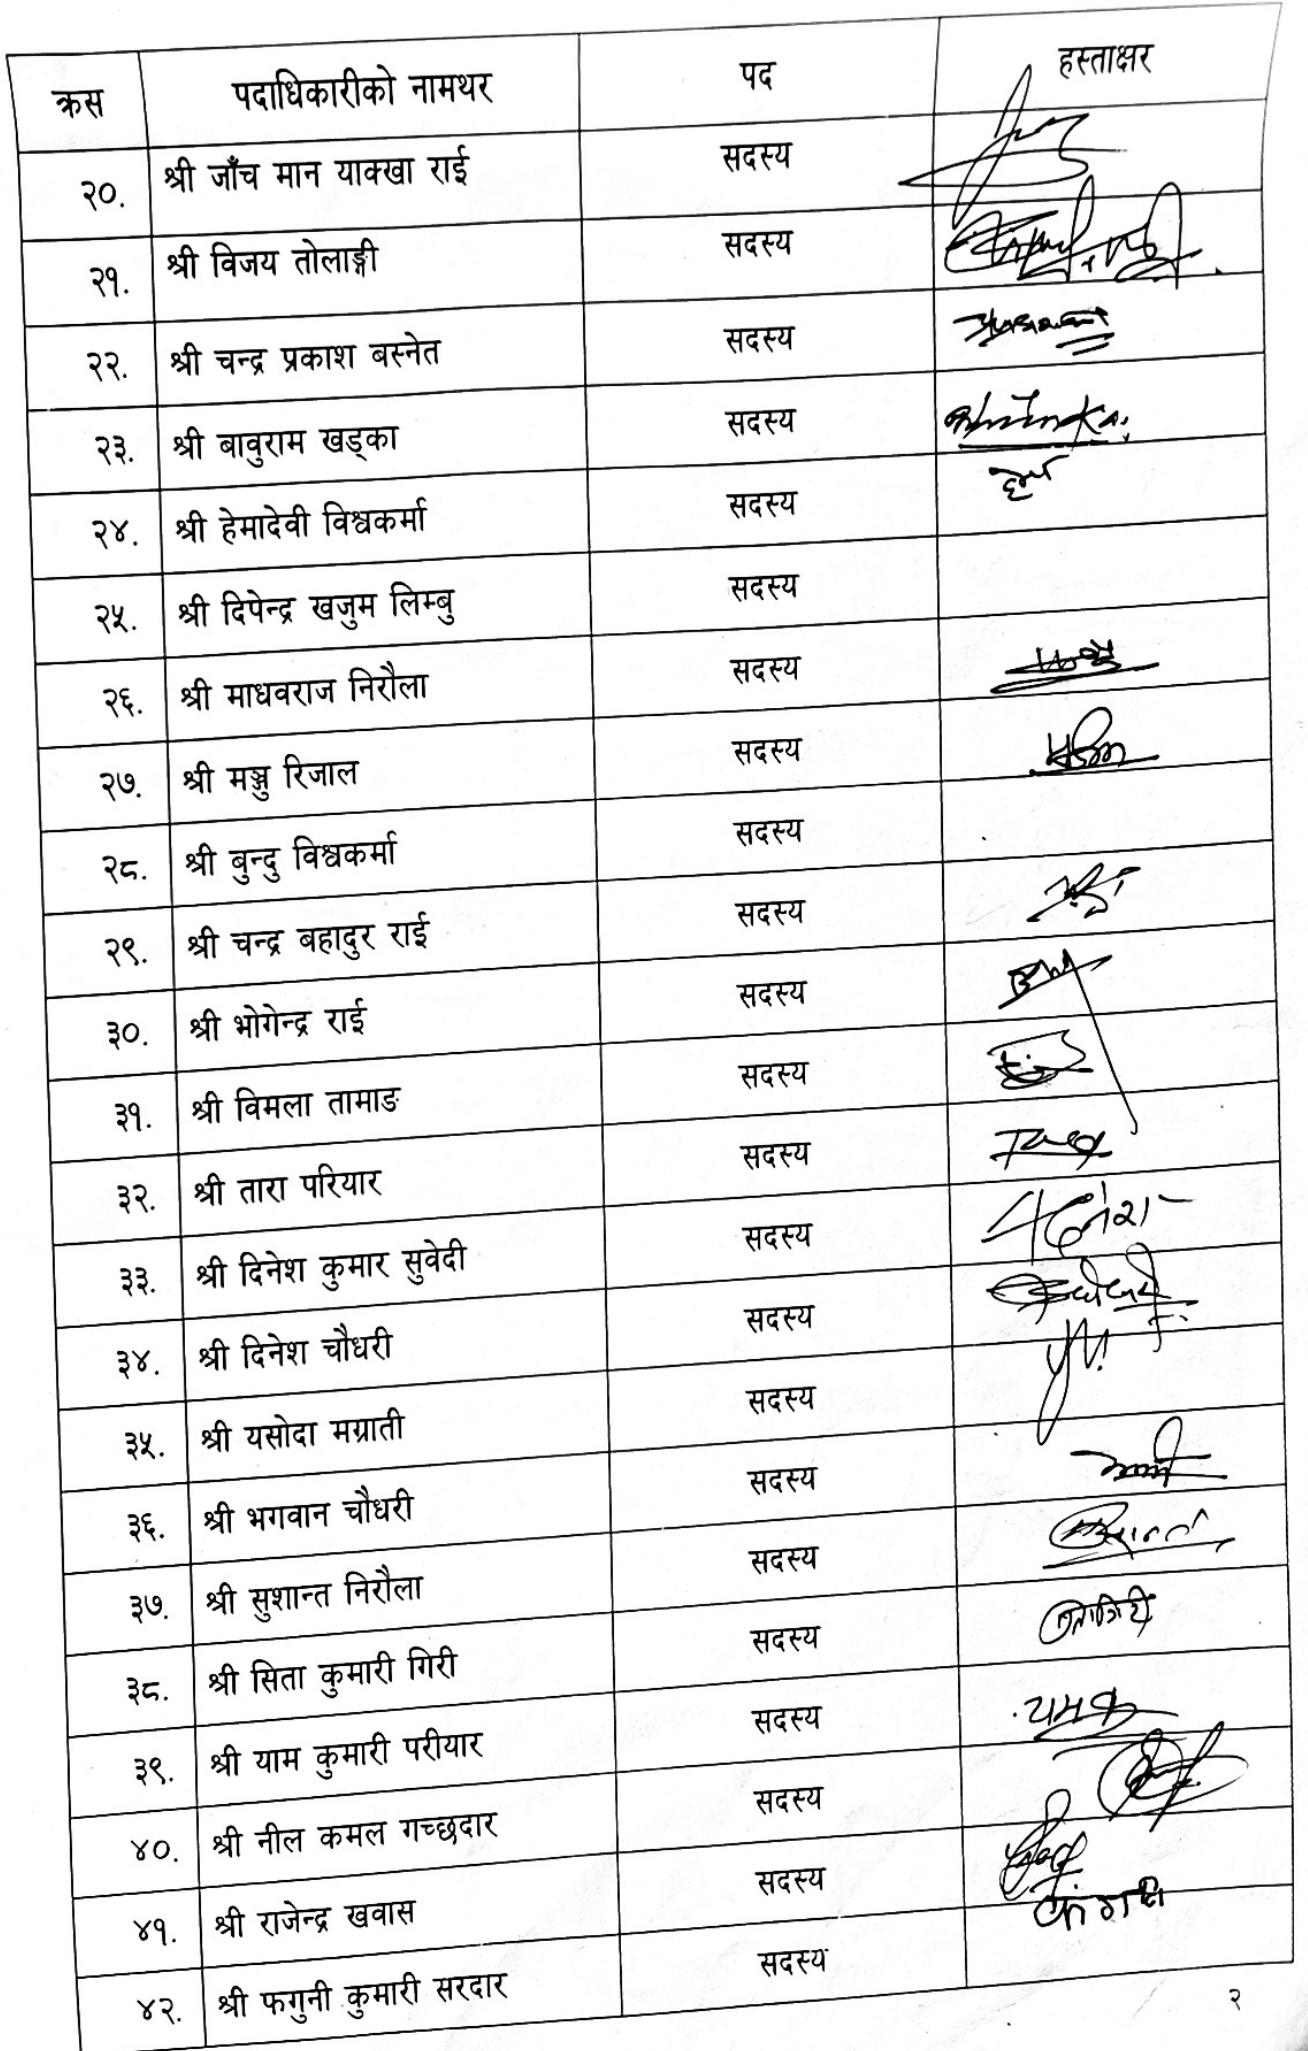 क्रस पदाधिकारीको नामथर पद हस्ताक्षर
२०. श्री जाँच मान याक्खा राई सदस्य
२१. श्री विजय तोलाङ्गी सदस्य
२२. श्री चन्द्र प्रकाश बस्नेत सदस्य
२३. श्री बावुराम खड्का सदस्य
२४. श्री हेमादेवी विश्वकर्मा सदस्य
२५. श्री दिपेन्द्र खजुम लिम्बु सदस्य
२६. श्री माधवराज निरौला सदस्य
२७. श्री मञ्जु रिजाल सदस्य
२८. श्री बुन्दु विश्वकर्मा सदस्य
२९. श्री चन्द्र बहादुर राई सदस्य
३०. श्री भोगेन्द्र राई सदस्य
३१. श्री विमला तामाङ सदस्य
३२. श्री तारा परियार सदस्य
३३. श्री दिनेश कुमार सुवेदी सदस्य
३४. श्री दिनेश चौधरी सदस्य
३५. श्री यसोदा मग्राती सदस्य
३६. श्री भगवान चौधरी सदस्य
३७. श्री सुशान्त निरौला सदस्य
३८. श्री सिता कुमारी गिरी सदस्य
३९. श्री याम कुमारी परीयार सदस्य
४०. श्री नील कमल गच्छदार सदस्य
४१. श्री राजेन्द्र खवास सदस्य
४२. श्री फगुनी कुमारी सरदार सदस्य
२